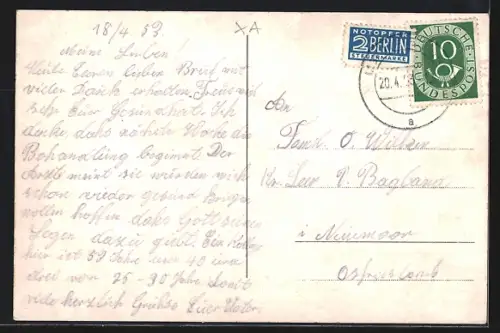 18/4 53.
XA
Meine Lieben!
Heute Euren lieben Brief mit
vielen Dank erhalten. Freue mich
sehr Eure Gesundheit. Ich
denke, dahs nächste Woche die
Behandlung beginnt. Der
Arzt meint sie würden mich
schon wieder gesund kriegen
wollen hoffen dahs Gott seinen
Segen dazu giebt. Ein
hier ist 59 Jahre und 40 und
drei von 25-30 Jahre. Sonst
viele herzlich Grühse Euer Vater.
NOTOPFER
2 BERLIN
STEUERMARKE
DEUTSCHE BUNDESPOST
10
20.4.
a
An
Fam. O.
Kr. Leer P. Bagband
i Neuemoor
Ostfriesland